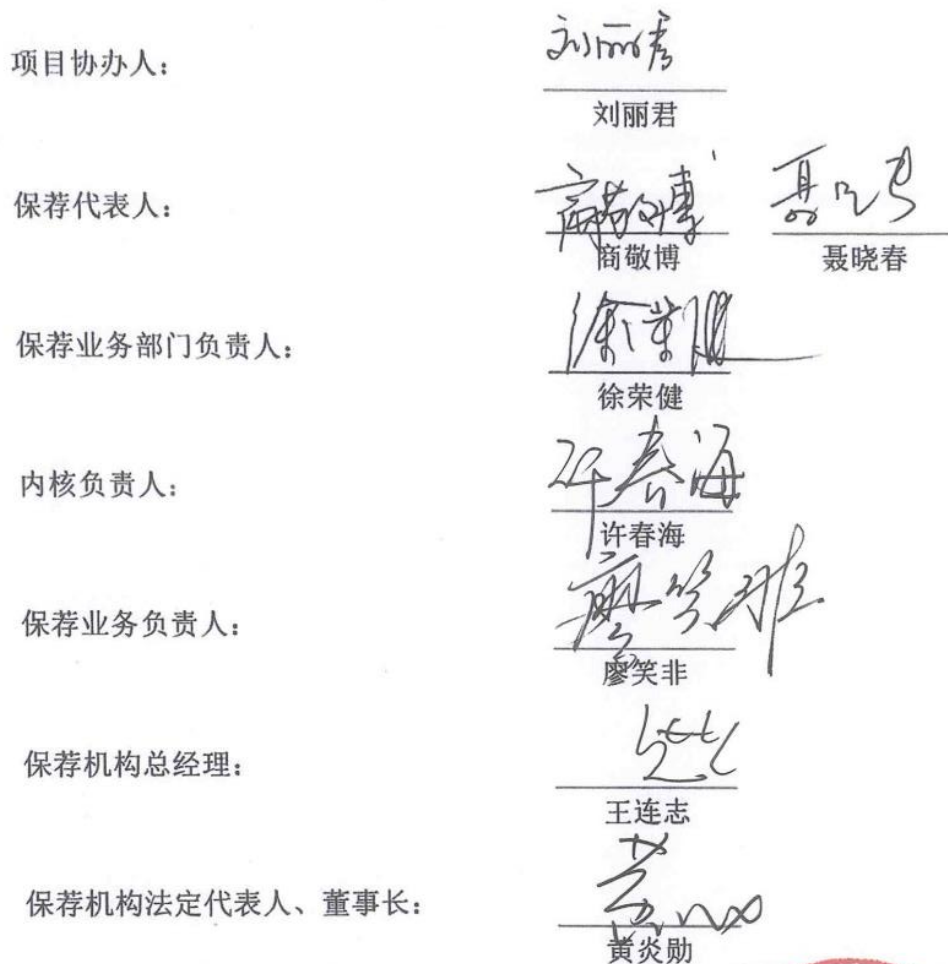 项目协办人：
刘丽君
刘丽君
保荐代表人：
商敬博
商敬博 聂晓春
保荐业务部门负责人：
徐荣健
徐荣健
内核负责人：
许春海
许春海
保荐业务负责人：
廖笑非
廖笑非
保荐机构总经理：
王连志
保荐机构法定代表人、董事长：
黄炎勋